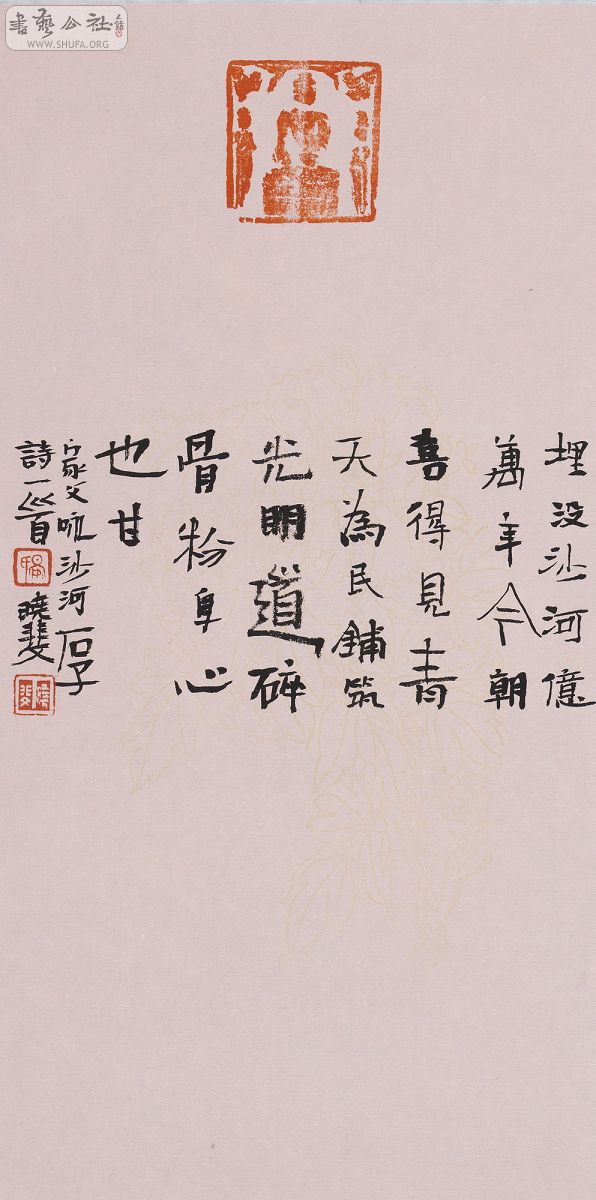 書藝公社
WWW.SHUFA.ORG
埋没沙河億
萬年今朝
喜得見青
天為民鋪筑
光明道碎
骨粉身心
也甘
家父咏沙河石子
詩一首
曉斐